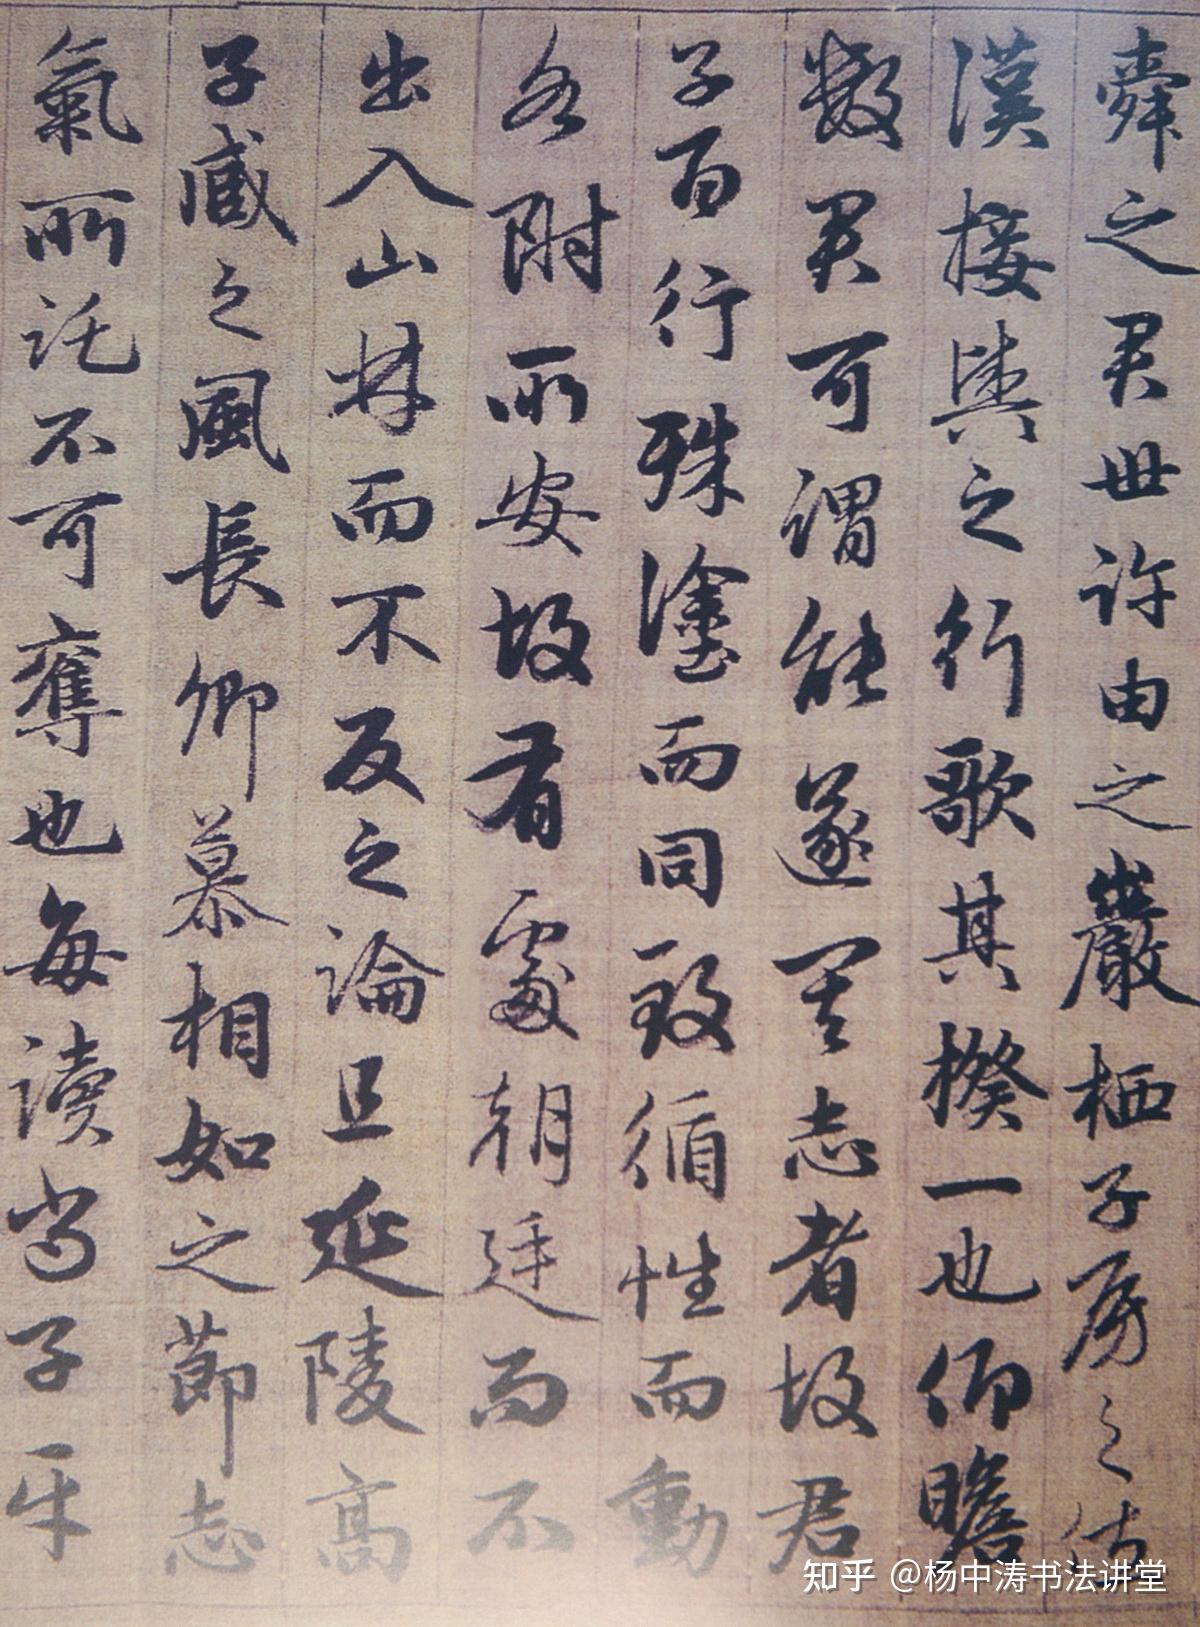 舜之君世许由之巖栖子房之佐
漢接輿之行歌其揆一也仰瞻
數君可謂能遂其志者故君
子百行殊塗而同致循性而動
各附所安故有處朝廷而不
出入山林而不反之論且延陵高
子臧之風長卿慕相如之節志
氣所託不可奪也每读尚子平
知乎 @杨中涛书法讲堂